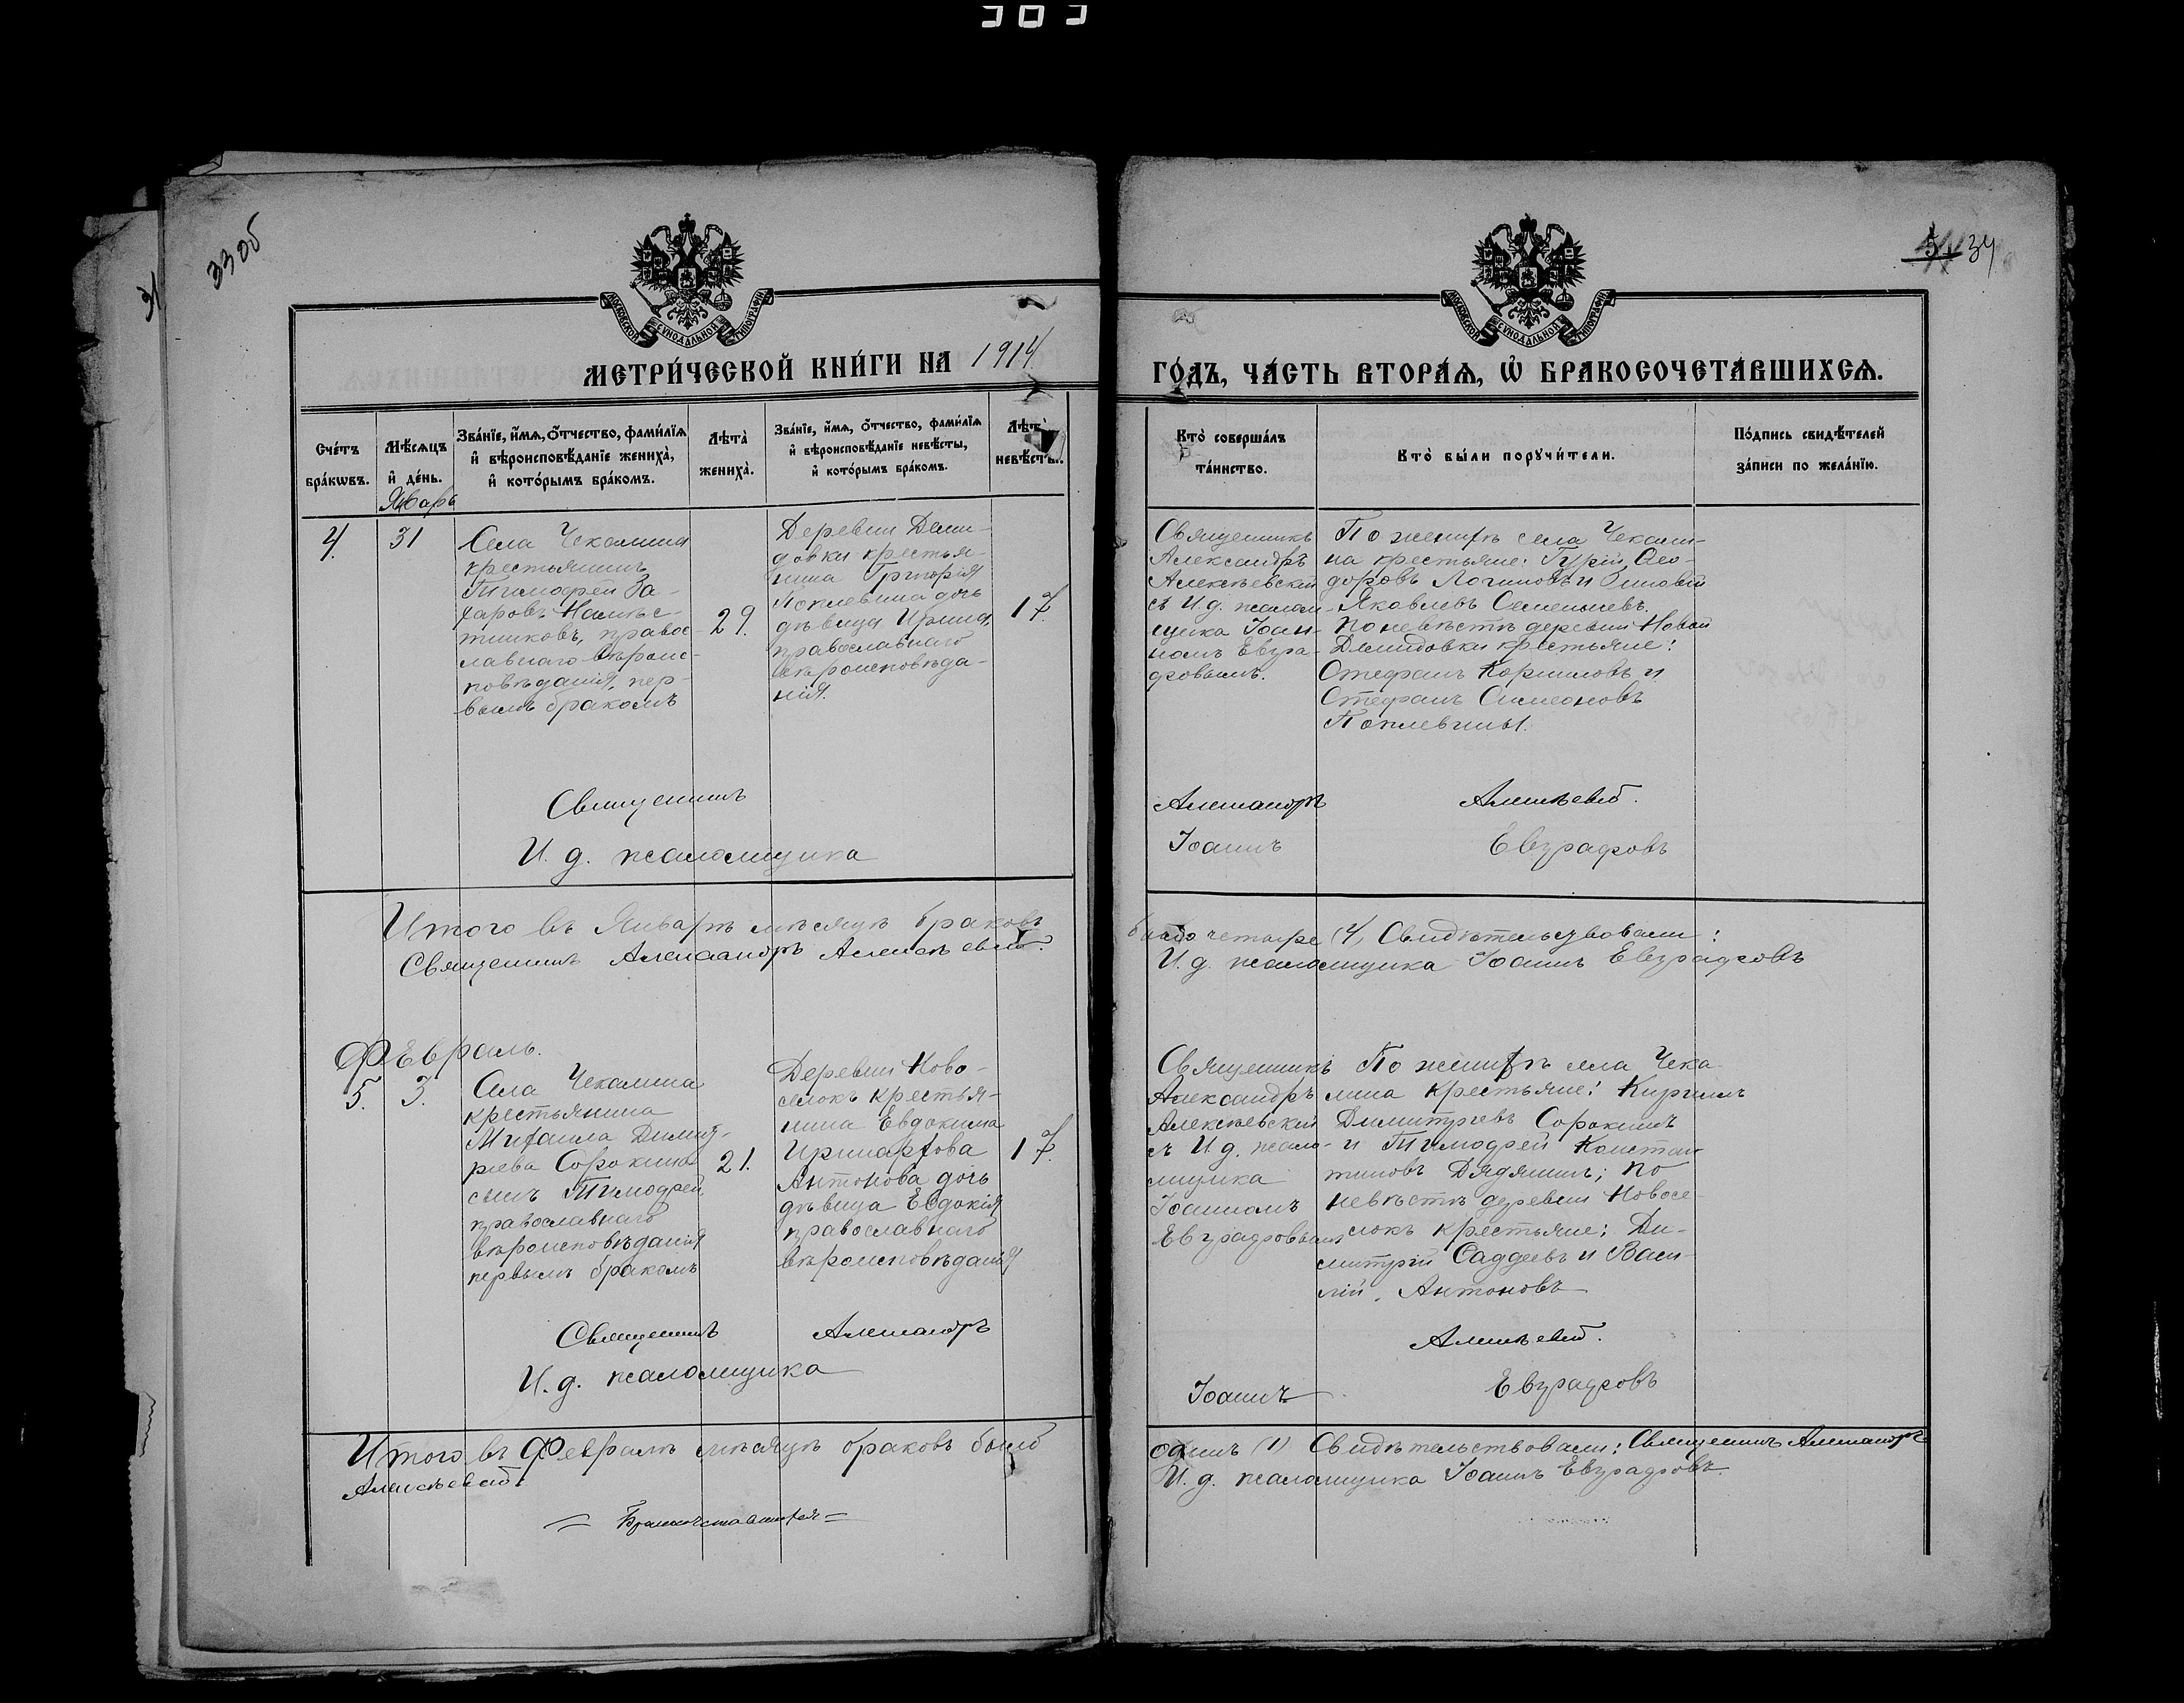 33 об
34
МЕТРИ́ЧЕСКОЙ КНИ́ГИ НА 1914
ГО́ДЪ, ЧА́СТЬ ВТОРА́Ѧ, Ѽ БРАКОСОЧЕТА́ВШИХСѦ.
Сче́тъ бра́кѡвъ.
Мѣ́сѧцъ и҆ де́нь.
Зва́нїе, и҆́мѧ, ѻ҆́тчество, фами́лїѧ
и҆ вѣроисповѣ́данїе жениха̀,
и҆ кото́рымъ бра́комъ.
Лѣта̀ жениха̀.
Зва́нїе, и҆́мѧ, ѻ҆́тчество, фами́лїѧ
и҆ вѣроисповѣ́данїе невѣ́сты,
и҆ кото́рымъ бра́комъ.
невѣ́сты.
Кто̀ соверша́лъ
та́инство.
Кто̀ бы́ли порꙋчи́тели.
По́дпись свидѣ́телей
за́писи по жела́нїю.
Январь
4.
31
Села Чекалина
крестьянинъ
Тимофей За-
харовъ Намѣс-
тниковъ, правос-
лавнаго вѣроис-
повѣданія, пер-
вымъ бракомъ
29.
Деревни Деми-
довки крестья-
нина Григорія
Поплевина дочь
дѣвица Ирина
православнаго
вѣроисповѣда-
нія.
17.
Священникъ
Александръ
Алексѣевскій
съ И.д. псалом-
щика Іоан-
номъ Евгра-
фовымъ.
По женихѣ села Чекали-
на крестьяне: Гурій Ѳео-
доровъ Логиновъ и
Яковлевъ Семенычевъ.
По невѣстѣ деревни Новой
Демидовки крестьяне:
Стефанъ Корниловъ и
Стефанъ Симеоновъ
Поплевины.
Священникъ Александръ Алексѣевскій.
И.д. псаломщика Іоаннъ Евграфовъ
Итого въ Январѣ мѣсяцѣ браковъ было четыре (4) Свидѣтельствовали:
Священникъ Александръ Алексѣевскій. И.д. псаломщика Іоаннъ Евграфовъ
Февраль.
5.
3.
Села Чекалина
крестьянина
Михаила Димит-
ріева Сорокина
сынъ Тимофей
православнаго
вѣроисповѣданія
первымъ бракомъ
21.
Деревни Ново-
селокъ крестья-
нина Евдокима
Иринархова
Антонова дочь
дѣвица Евдокія
православнаго
вѣроисповѣданія
17.
Священникъ
Александръ
Алексѣевскій
съ И.д. псало-
мщика
Іоанномъ
Евграфовымъ
По женихѣ села Чека
лина крестьяне: Кириллъ
Димитріевъ Сорокинъ
и Тимофей Констан
тиновъ Дядянинъ; по
невѣстѣ деревни Новосе-
локъ крестьяне: Ди-
митрій Фаддеевъ и Васи-
лій Антоновъ
Священникъ Александръ Алексѣевскій.
И.д. псаломщика Іоаннъ Евграфовъ
Итого въ Февралѣ мѣсяцѣ браковъ былъ одинъ (1) Свидѣтельствовали: Священникъ Александръ
Алексѣевскій. И.д. псаломщика Іоаннъ Евграфовъ.
= Бракосочетавшихся =